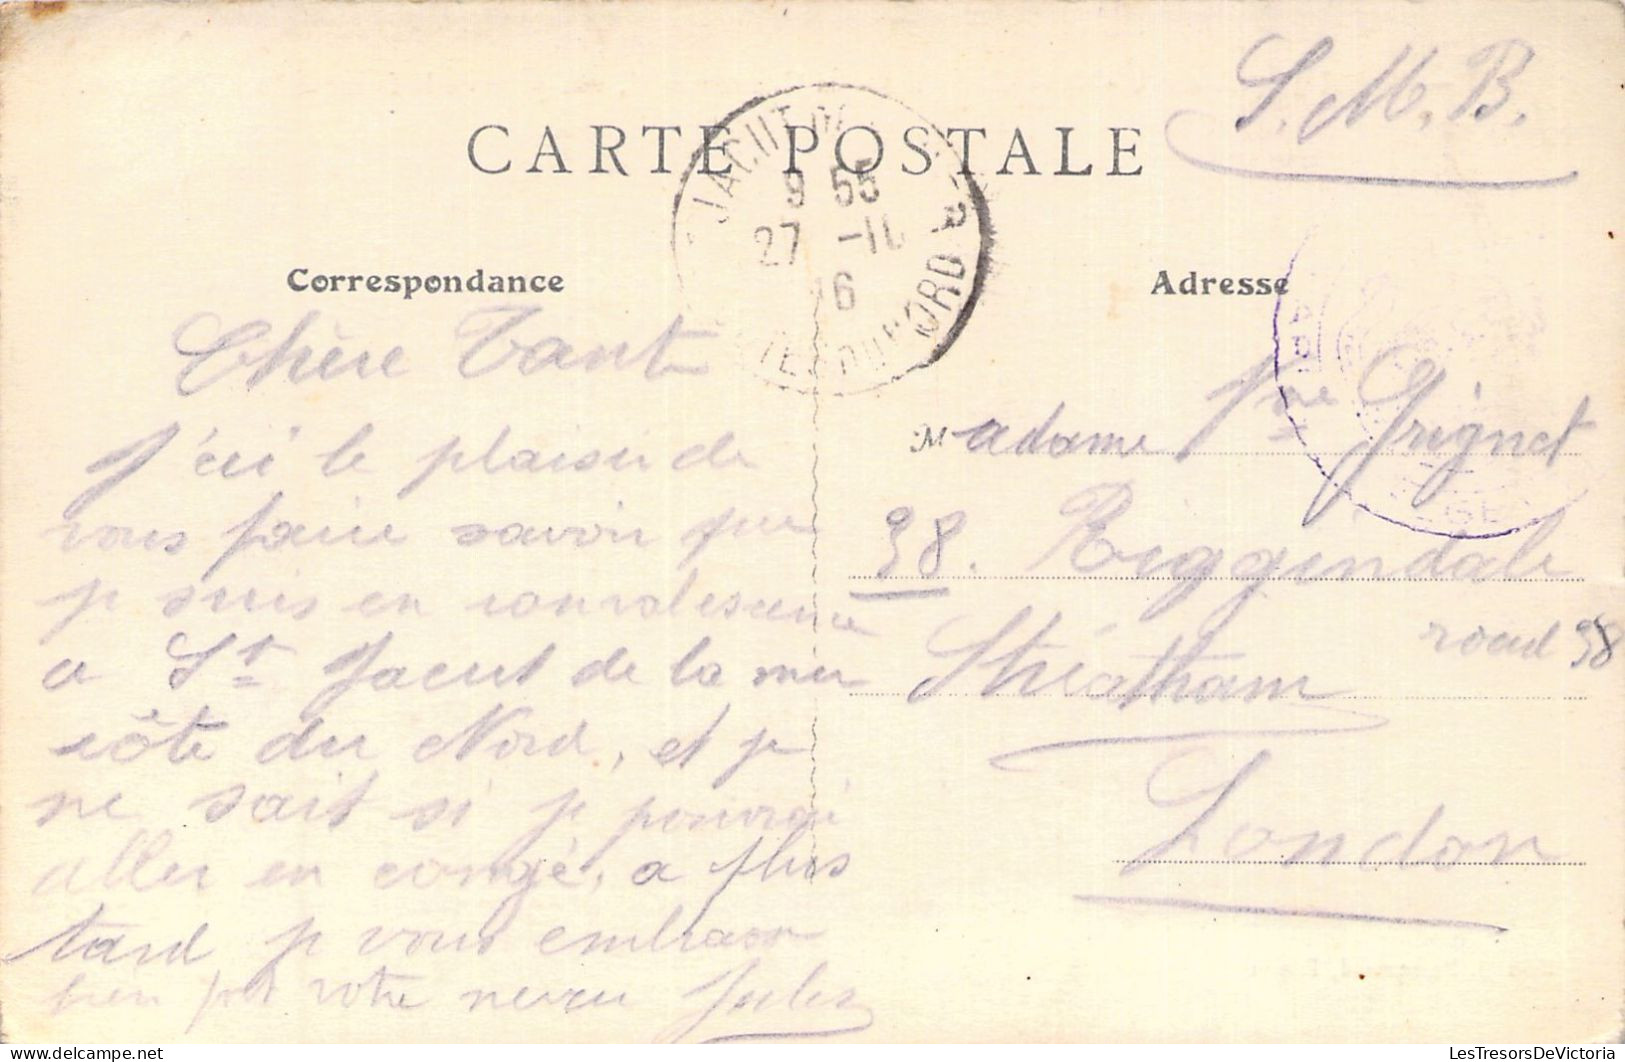 S.M.B.
CARTE POSTALE
JACUT DE LA MER
9 55
27 -11
16
CÔTES DU NORD
Correspondance
Adresse
Chère Tant
J'ai le plaisir de
vous faire savoir que
je suis en convalescence
a St Jacut de la mer
côte du Nord, et je
ne sait si je pourrai
aller en congé, a plus
tard je vous embrasse
bien fort votre neveu Jules
Madame Vve Grignet
98. Riggindale
road 98
Stréatham
London
LesTresorsDeVictoria
delcampe.net